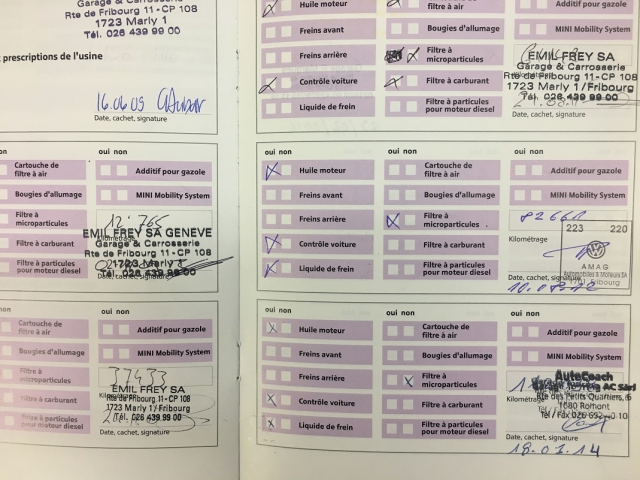 Garage & Carrosserie
Rte de Fribourg 11 - CP 108
1723 Marly 1
Tél. 026 439 99 00
prescriptions de l'usine
16.06.09
Date, cachet, signature
oui non
Cartouche de filtre à air
Additif pour gazole
Bougies d'allumage
MINI Mobility System
Filtre à microparticules
12'766
EMIL FREY SA GENEVE
Garage & Carrosserie
Kilométrage
Filtre à carburant
Rte de Fribourg 11 - CP 108
1723 Marly 1
Filtre à particules pour moteur diesel
Tél. 026 439 99 00
Date, cachet, signature
oui non
Cartouche de filtre à air
Additif pour gazole
Bougies d'allumage
MINI Mobility System
Filtre à microparticules
37433
EMIL FREY SA
Kilométrage
Filtre à carburant
Rte de Fribourg 11 - CP 108
1723 Marly 1/Fribourg
Filtre à particules pour moteur diesel
Tél. 026 439 99 00
Date, cachet, signature
Huile moteur
filtre à air
Additif pour gazole
Freins avant
Bougies d'allumage
MINI Mobility System
Freins arrière
Filtre à microparticules
EMIL FREY SA
Garage & Carrosserie
Contrôle voiture
Filtre à carburant
Rte de Fribourg 11 - CP 108
1723 Marly 1/Fribourg
Liquide de frein
Filtre à particules pour moteur diesel
Tél. 026 439 99 00
Date, cachet, signature
oui non
oui non
oui non
Huile moteur
Cartouche de filtre à air
Additif pour gazole
Freins avant
Bougies d'allumage
MINI Mobility System
Freins arrière
Filtre à microparticules
223 220
Kilométrage
Contrôle voiture
Filtre à carburant
AMAG
Automobiles & Moteurs SA
Fribourg
Liquide de frein
Filtre à particules pour moteur diesel
Date, cachet, signature
oui non
oui non
oui non
Huile moteur
Cartouche de filtre à air
Additif pour gazole
Freins avant
Bougies d'allumage
MINI Mobility System
Freins arrière
Filtre à microparticules
AutoCoach
AC Sàrl
Contrôle voiture
Filtre à carburant
Kilométrage
Rte des Petits Quartiers, 6
1680 Romont
Liquide de frein
Filtre à particules pour moteur diesel
Tél / Fax 026 652
Date, cachet, signature
18.01.14